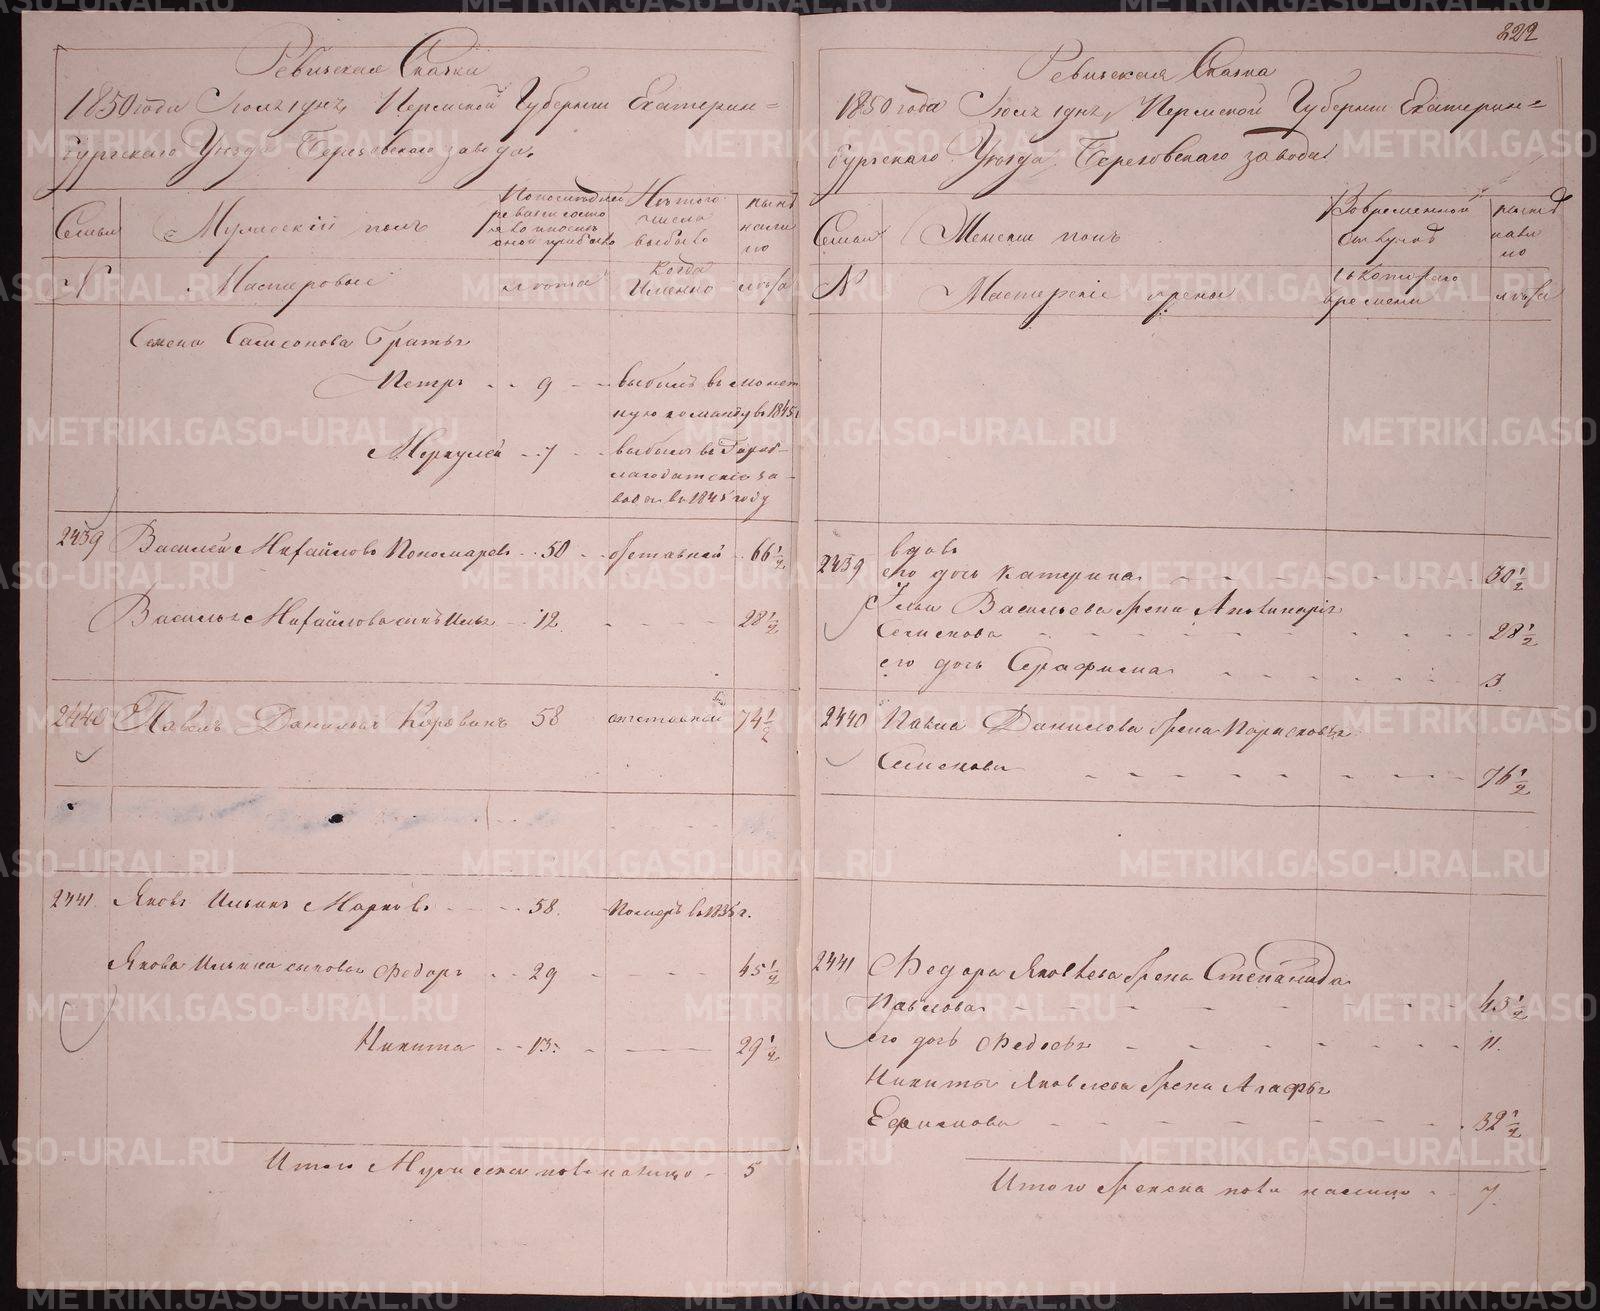 Ревизская Сказка
1850 года Июля 1 дня, Пермской Губернии Екатерин=
бургскаго Уезда Березовскаго завода.
Семьи
Мужеский полъ
По последней ревизии состояло и после оной прибыло
Изъ того числа выбыло
ныне налицо
N
Мастеровые
лета
когда именно
лета
Семена Самсонова Братья
Петръ - - 9 - - выбылъ въ монет
ную команду въ 1845 г
Меркулей - - 7 - - выбылъ въ Гороб-
лагодатские за-
вода въ 1845 году
2439 Василей Михайловъ Пономаревъ - - 50 - - отставной - - 66 1/2
Василья Михайлова сынъ Илья - - 12 - - - - 28 1/2
2440 Павелъ Даниловъ Коровинъ 58 отставной 74 1/2
2441 Яковъ Ильинъ Марковъ - - - - 58. - Померъ въ 1835 г.
Якова Ильина сыновья Федоръ - - 29 - - - - 45 1/2
Никита - - 13. - - 29 1/2
Итого Мужеска пола налицо - 5
322
Ревизская Сказка
1850 года Июля 1 дня, Пермской Губернии Екатерин=
бургскаго Уезда Березовскаго завода
Семьи
Женский полъ
Во временной отлучке
ныне налицо
N
Мастерские жены
съ котораго времени
лета
2439
вдова
его дочь Катерина - - - - - - 30 1/2
Ильи Васильева жена Аполинария
Семенова - - - - - - 28 1/2
его дочь Серафима - - - - - - 3
2440 Павла Данилова жена Парасковья
Семенова - - - - - - 76 1/2
2441 Федора Яковлева жена Степанида
Павлова - - - - - - 43 1/2
его дочь Федосья - - - - - - 11.
Никиты Яковлева жена Агафья
Ефимова - - - - - - 32 1/2
Итого женска пола налицо - - 7
METRIKI.GASO-URAL.RU